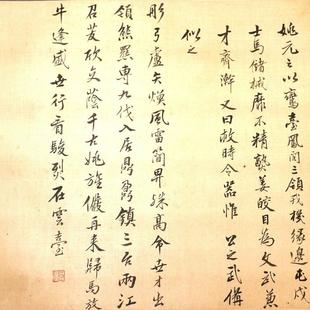 姚元之以鸞臺鳳閣三領戎機緣邊屯戍
士馬儲械靡不精熟姜皎目為文武兼
才齊澣又曰救時令器惟 公之武備
似之
彤弓盧矢煥風雷簡畀殊高命世才出
領熊羆專九伐入居鼎鼐鎮三台兩江
召茇欣交蔭千古姚旌儼再來歸馬放
牛逢盛世行看駿烈石雲臺